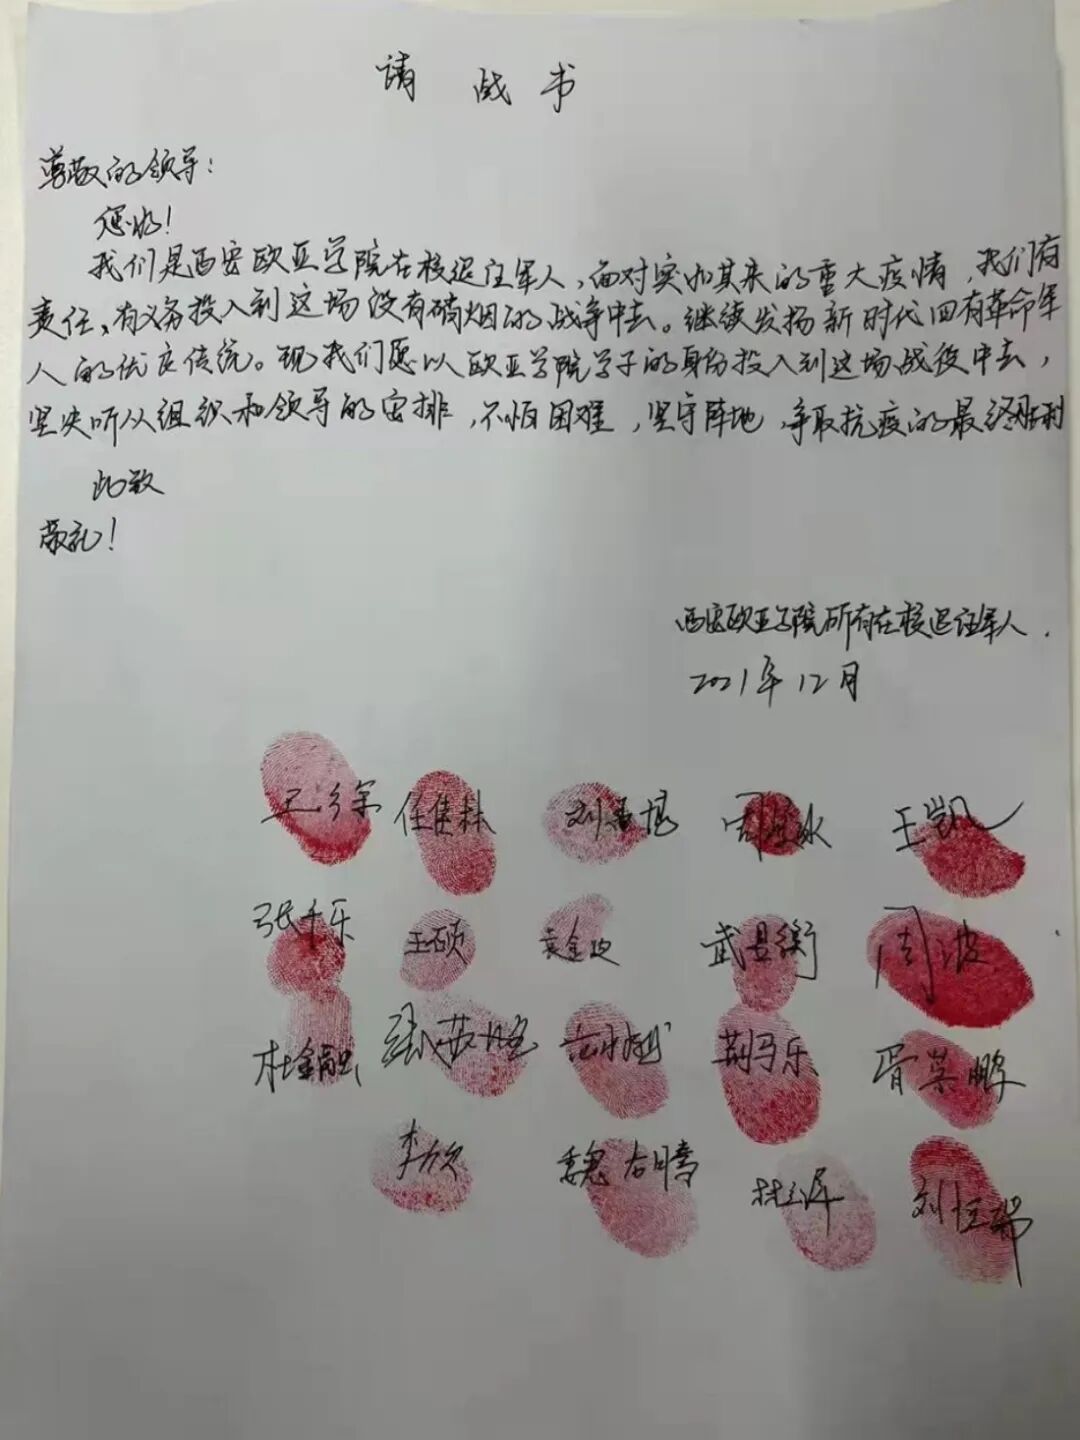 请战书
尊敬的领导：
您好！
我们是西安欧亚学院在校退役军人，面对突如其来的重大疫情，我们有
责任、有义务投入到这场没有硝烟的战争中去。继续发扬新时代四有革命军
人的优良传统。现我们愿以欧亚学院学子的身份投入到这场战役中去，
坚决听从组织和领导的安排，不怕困难，坚守阵地，争取抗疫的最终胜利
此致
敬礼！
西安欧亚学院所有在校退役军人.
2021年12月
任佳林 刘 周 冰 王凯
张千乐 王硕 袁金 武昱衡 周波
杜鑫 荆马乐 胥英鹏
李欣 魏右腾 林 刘恒瑞